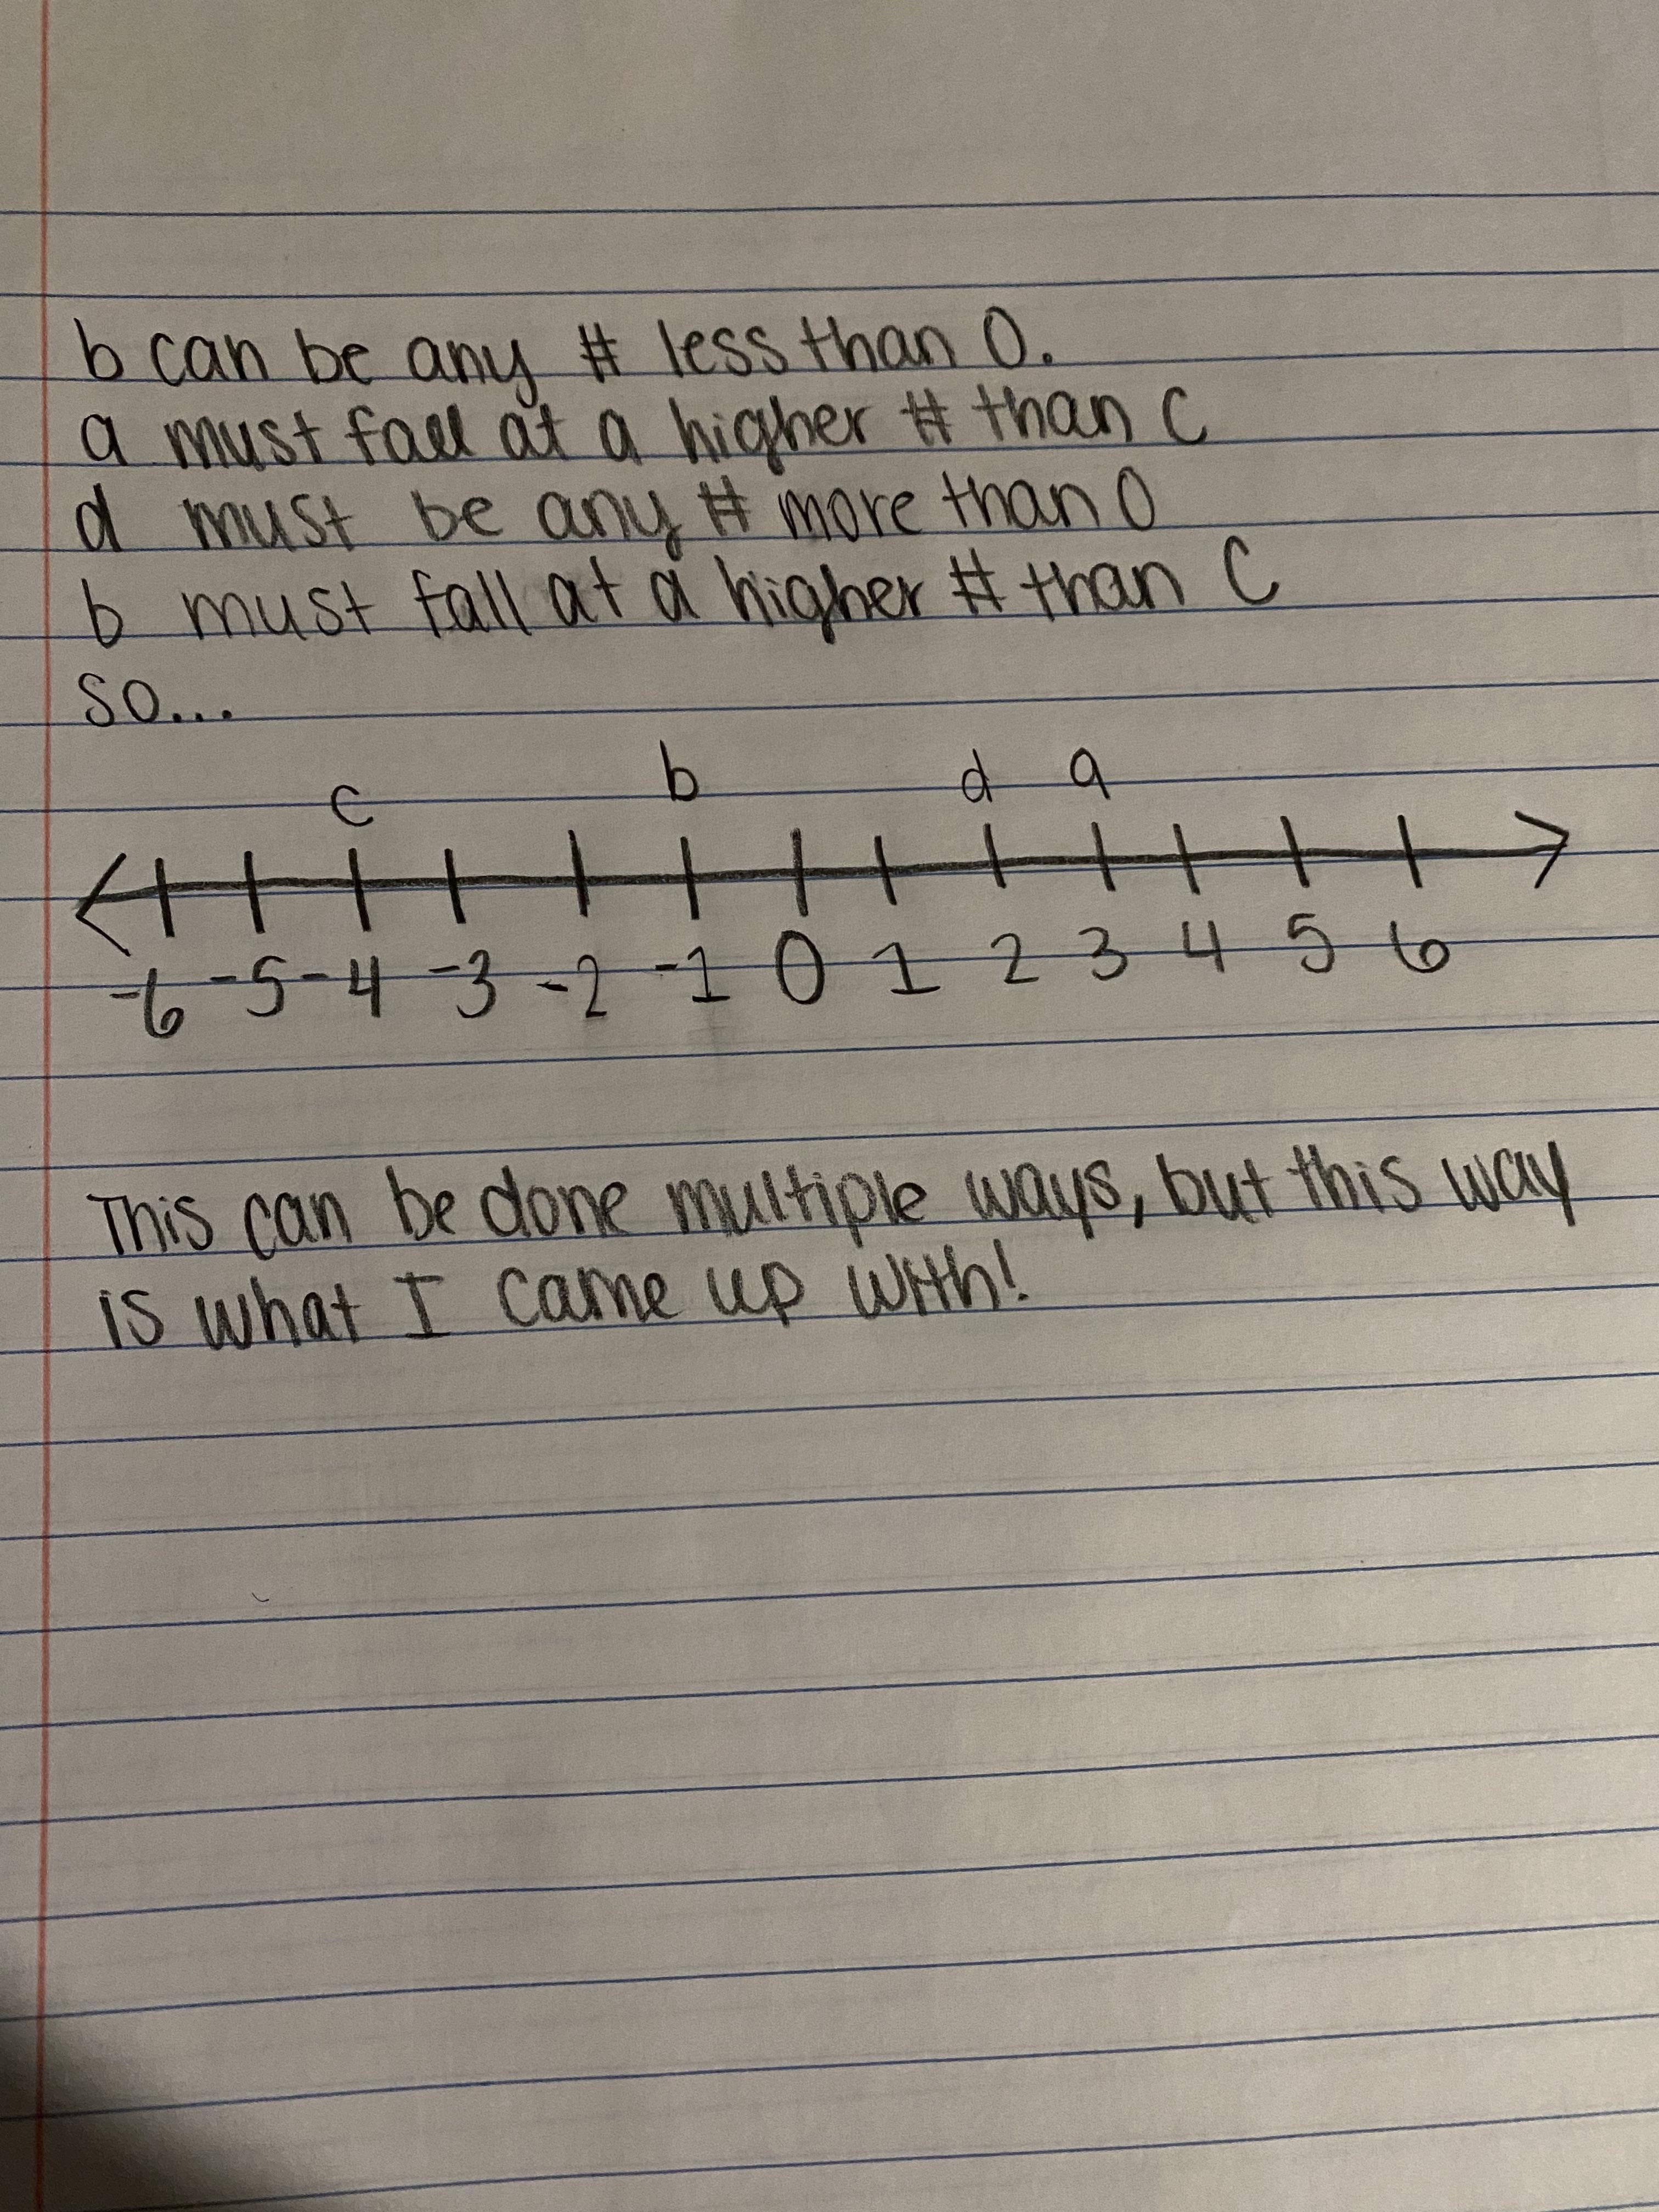 b can be any # less than 0.
a must fall at a higher # than c
d must be any # more than 0
b must fall at a higher # than c
so...
c b d a
-6 -5 -4 -3 -2 -1 0 1 2 3 4 5 6
This can be done multiple ways, but this way
is what I came up with!